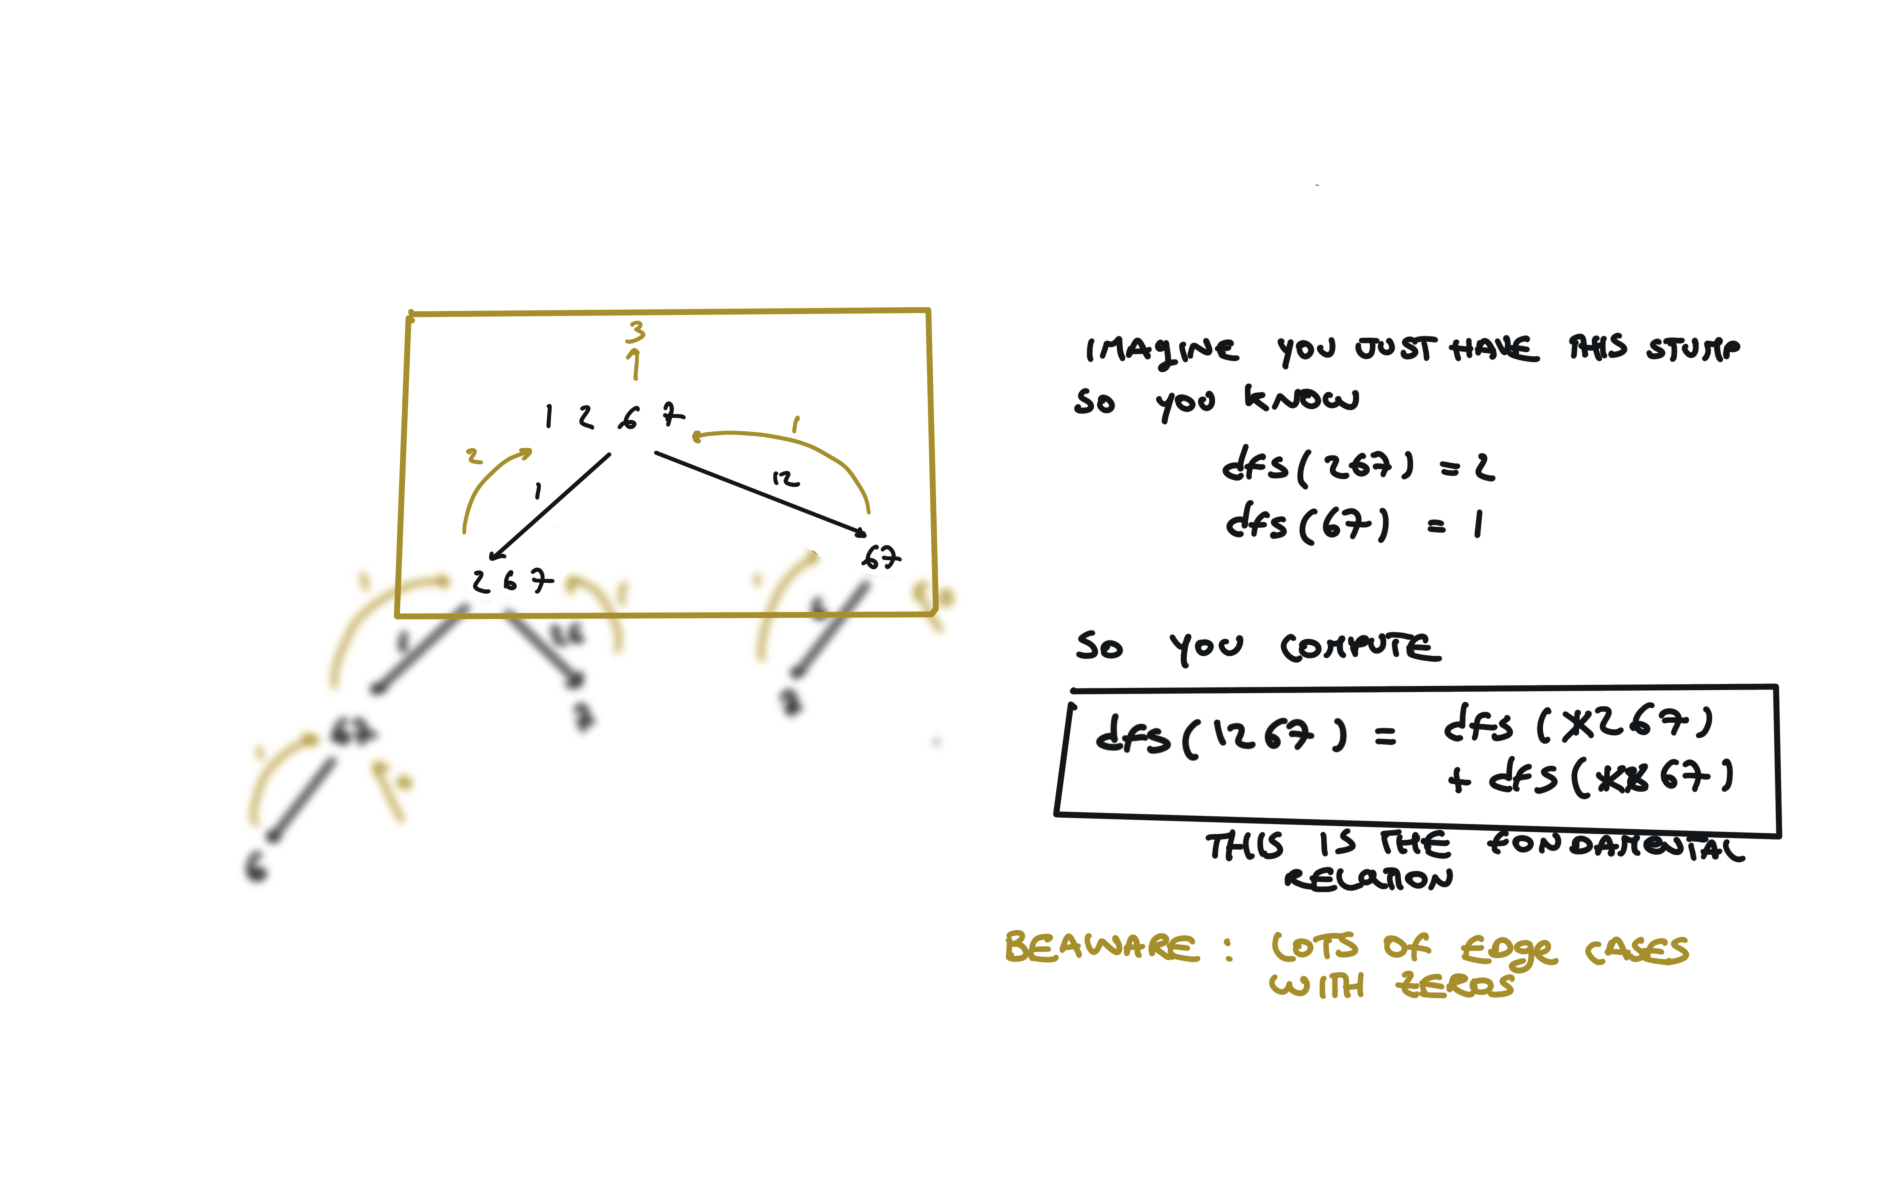 3
1 2 6 7
1
2
1
12
2 6 7
67
67
6
IMAGINE YOU JUST HAVE THIS STUMP
SO YOU KNOW
dfs(267) = 2
dfs(67) = 1
SO YOU COMPUTE
dfs(1267) = dfs(X267)
+ dfs(XX67)
THIS IS THE FONDAMENTAL
RELATION
BEAWARE : LOTS OF EDGE CASES
WITH ZEROS